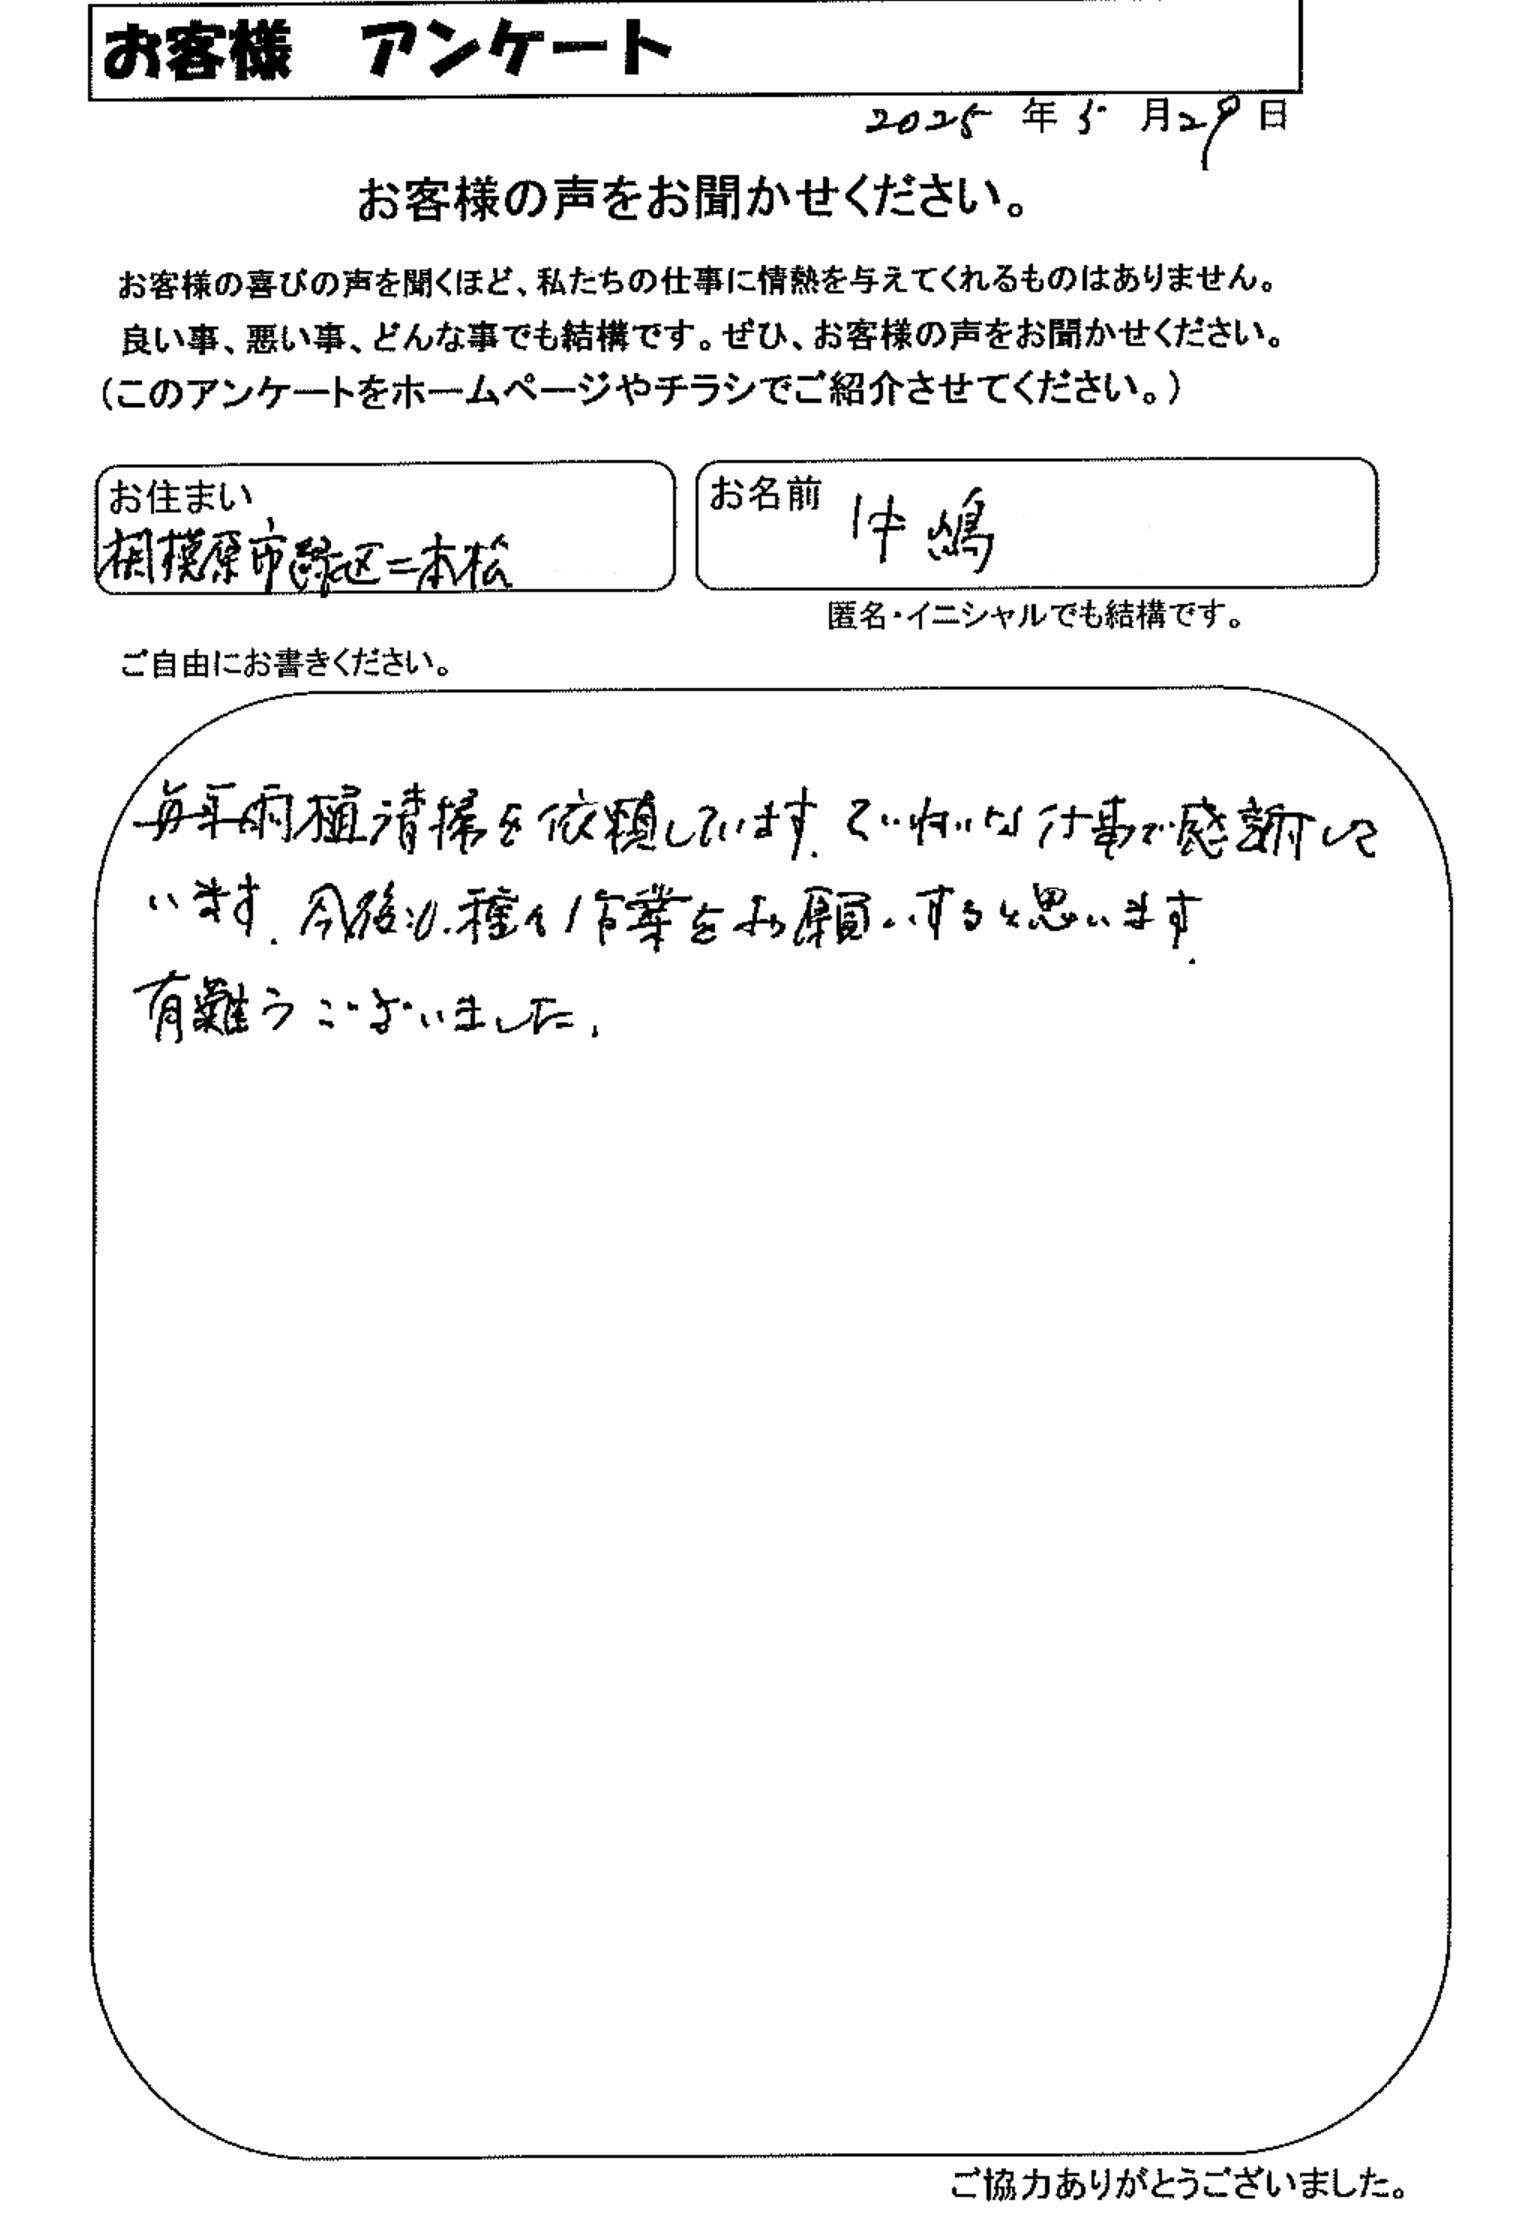 お客様　アンケート
2025 年 5 月 29 日
お客様の声をお聞かせください。
お客様の喜びの声を聞くほど、私たちの仕事に情熱を与えてくれるものはありません。
良い事、悪い事、どんな事でも結構です。ぜひ、お客様の声をお聞かせください。
(このアンケートをホームページやチラシでご紹介させてください。)
お住まい
相模原市緑区二本松
お名前 仲嶋
匿名・イニシャルでも結構です。
ご自由にお書きください。
毎年雨樋清掃を依頼しています. ていねいな仕事で感謝して
います. 今後も種々作業をお願いすると思います.
有難うございました.
ご協力ありがとうございました。